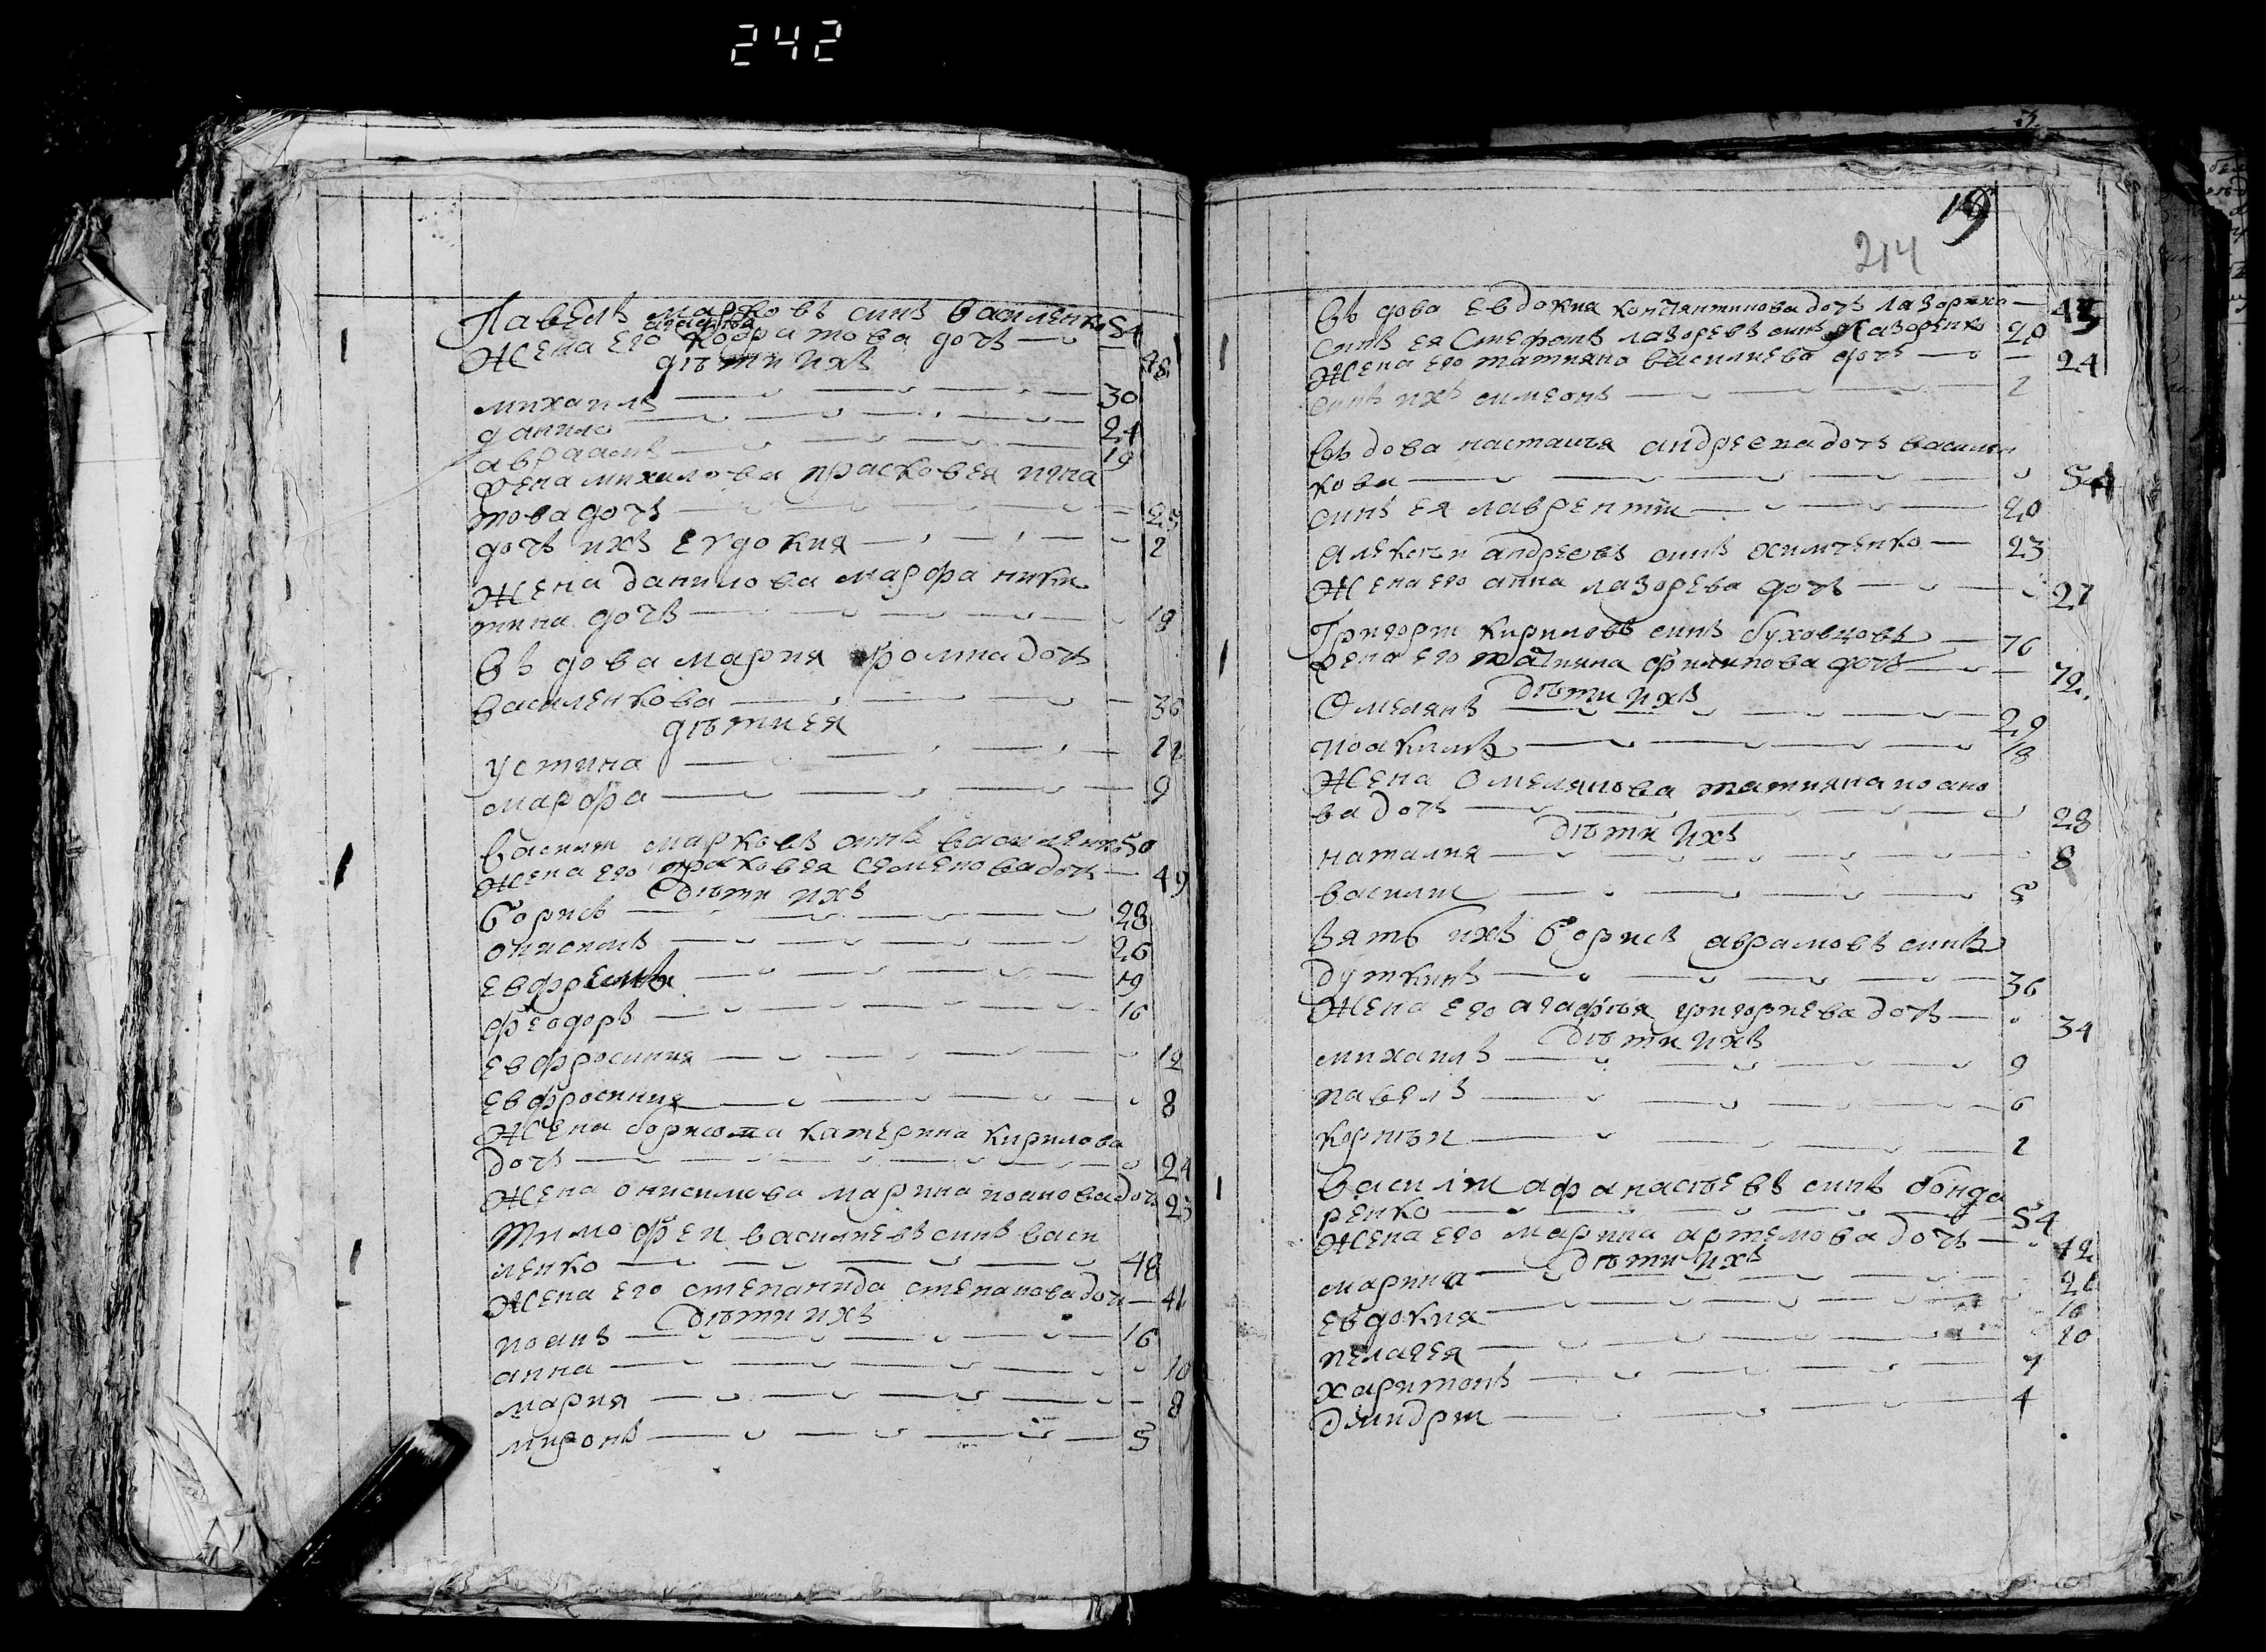 242
Павелъ марковъ синъ василенко 54
Жена его агафия кодратова дочъ 48
дѣти ихъ
михаилъ 30
данило 24
авраамъ 19
жена михилова прасковея игна
това дочъ 25
дочъ ихъ евдокия 2
Жена данилова марфа ники
тина дочъ 18
Въдова мария фомина дочъ
василенкова 36
дѣти ея
устина 12
марфа 9
василии марковъ синъ василенко 50
Жена его прасковея семенова дочъ 49
дѣти ихъ
борисъ 28
онисимъ 26
евфремъ 19
феодоръ 16
евфросиния 12
евфросиния 8
Жена борисова катерина кирилова
дочъ 24
Жена онисимова марина иоанова дочъ 23
Тимофеи василиевъ синъ васи
ленко 48
Жена его степанида степанова дочъ 41
дѣти ихъ
иоанъ 16
анна 10
мария 8
миронъ 5
19
214
Въдова евдокия константинова дочъ лазоренко 43
Синъ ея Стефанъ лазоревъ синъ лазоренко 20
Жена его татияна василиева дочъ 24
синъ ихъ симеонъ 2
Въдова настасия андреева дочъ василен
кова 54
синъ ея лаврентии 20
алексѣи андреевъ синъ охимченко 23
Жена его анна лазорева дочъ 27
Григории кириловъ синъ буховцовъ 76
жена его татияна филипова дочъ 72
дѣти ихъ
Омелянъ 29
иоакимъ 18
Жена Омелянова татияна иоано
ва дочъ 28
дѣти ихъ
наталия 8
василии 5
Зять ихъ борисъ аврамовъ синъ
дуткинъ 36
Жена его агафѣя григориева дочъ 34
дѣти ихъ
михаилъ 9
павелъ 6
корнѣи 2
василии афанасѣевъ синъ бонда
ренко 54
Жена его марина артемова дочъ 42
дѣти ихъ
марина 21
евдокия 16
пелагея 10
харитонъ 7
Дмидрии 4